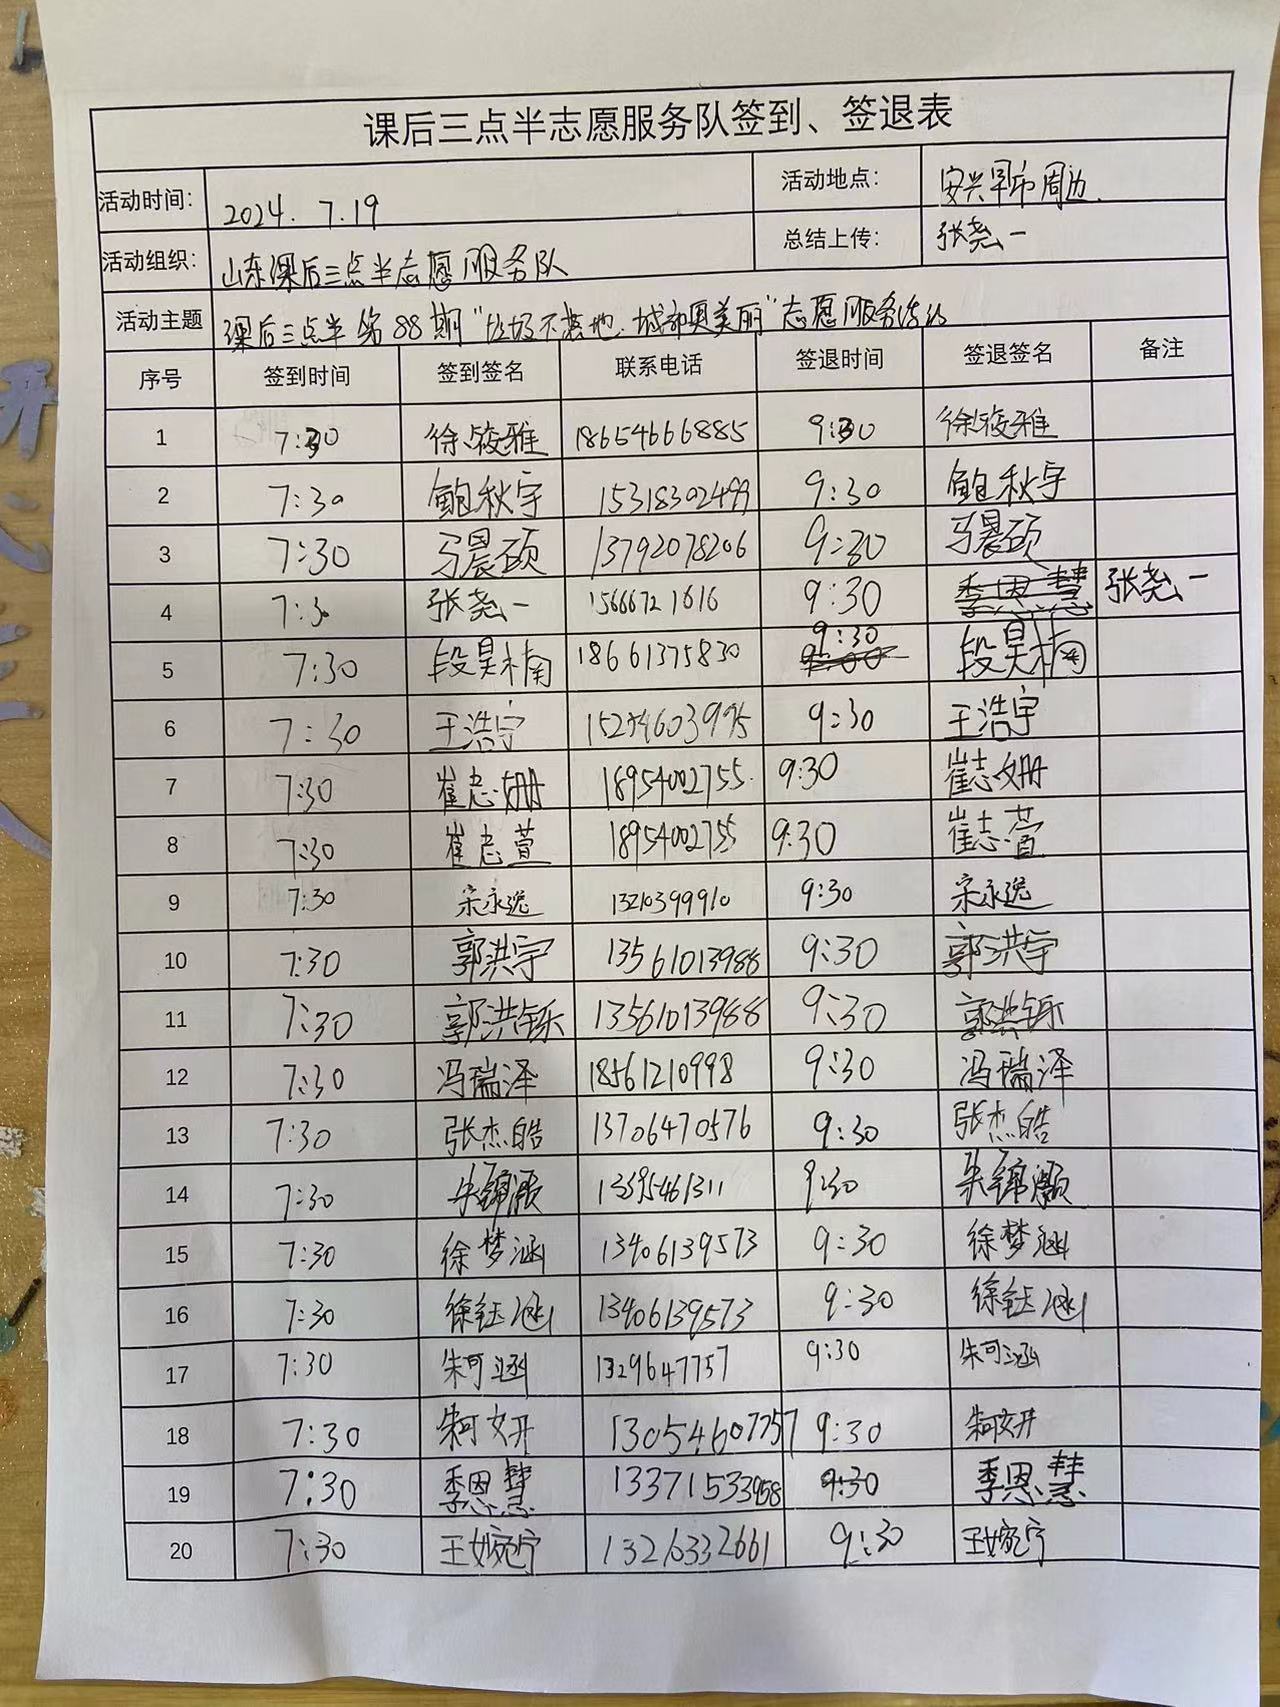 课后三点半志愿服务队签到、签退表
活动时间： 2024. 7.19 活动地点： 安兴早市周边
活动组织： 山东课后三点半志愿服务队 总结上传： 张尧一
活动主题 课后三点半第88期“垃圾不落地，城市更美丽”志愿服务活动
序号 签到时间 签到签名 联系电话 签退时间 签退签名 备注
1 7:30 徐筱雅 18654666885 9:30 徐筱雅
2 7:30 鲍秋宇 15318302499 9:30 鲍秋宇
3 7:30 马晨硕 13792078206 9:30 马晨硕
4 7:30 张尧一 15666721616 9:30 季恩慧 张尧一
5 7:30 段昊楠 18661375830 9:30 段昊楠
6 7:30 王浩宇 9:30 王浩宇
7 7:30 崔志姗 18954002755 9:30 崔志姗
8 7:30 崔志萱 18954002755 9:30 崔志萱
9 7:30 宋永逸 13210399910 9:30 宋永逸
10 7:30 郭洪宇 13561013988 9:30 郭洪宇
11 7:30 郭洪铄 13561013988 9:30 郭洪铄
12 7:30 冯瑞泽 18561210998 9:30 冯瑞泽
13 7:30 张杰皓 13706470576 9:30 张杰皓
14 7:30 朱锦灏 13395461311 9:30 朱锦灏
15 7:30 徐梦涵 13406139573 9:30 徐梦涵
16 7:30 徐钰涵 13406139573 9:30 徐钰涵
17 7:30 朱可涵 1329647757 9:30 朱可涵
18 7:30 朱可妍 13054607757 9:30 朱可妍
19 7:30 季恩慧 13371533958 9:30 季恩慧
20 7:30 王婉宁 13210332661 9:30 王婉宁